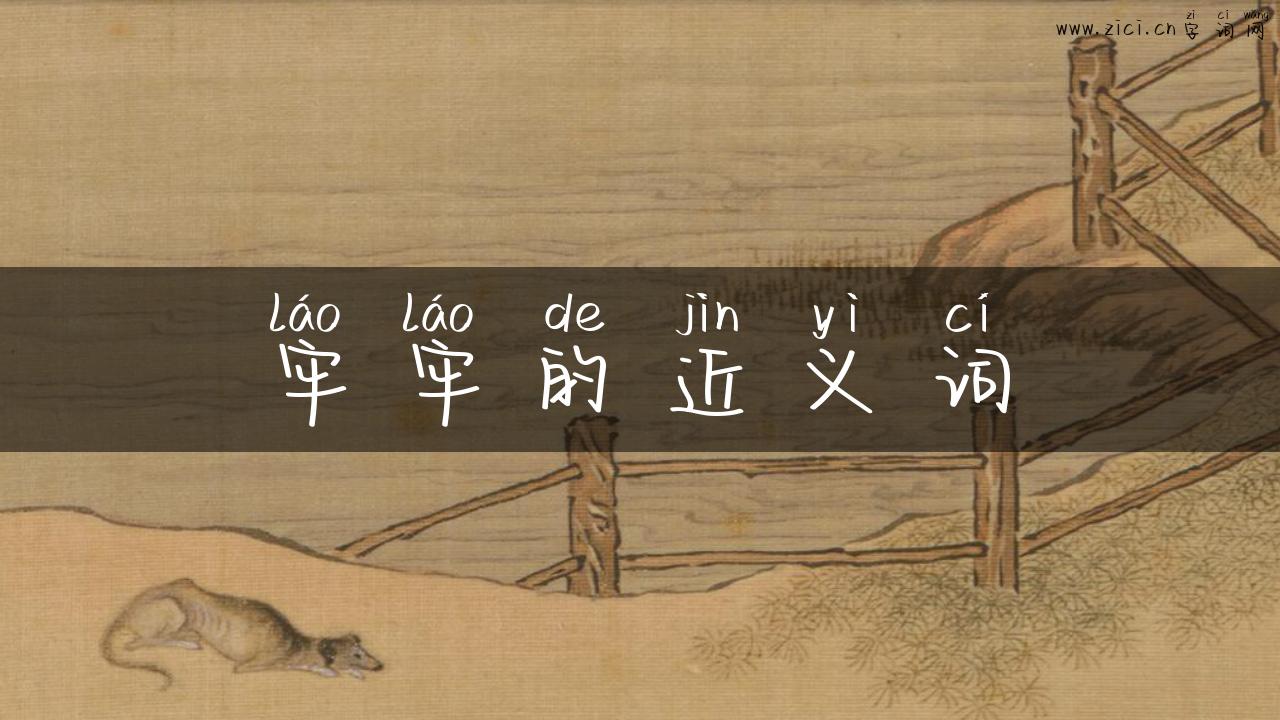 zì cí wǎng
www.zici.cn 字词网
láo láo de jìn yì cí
牢牢的近义词